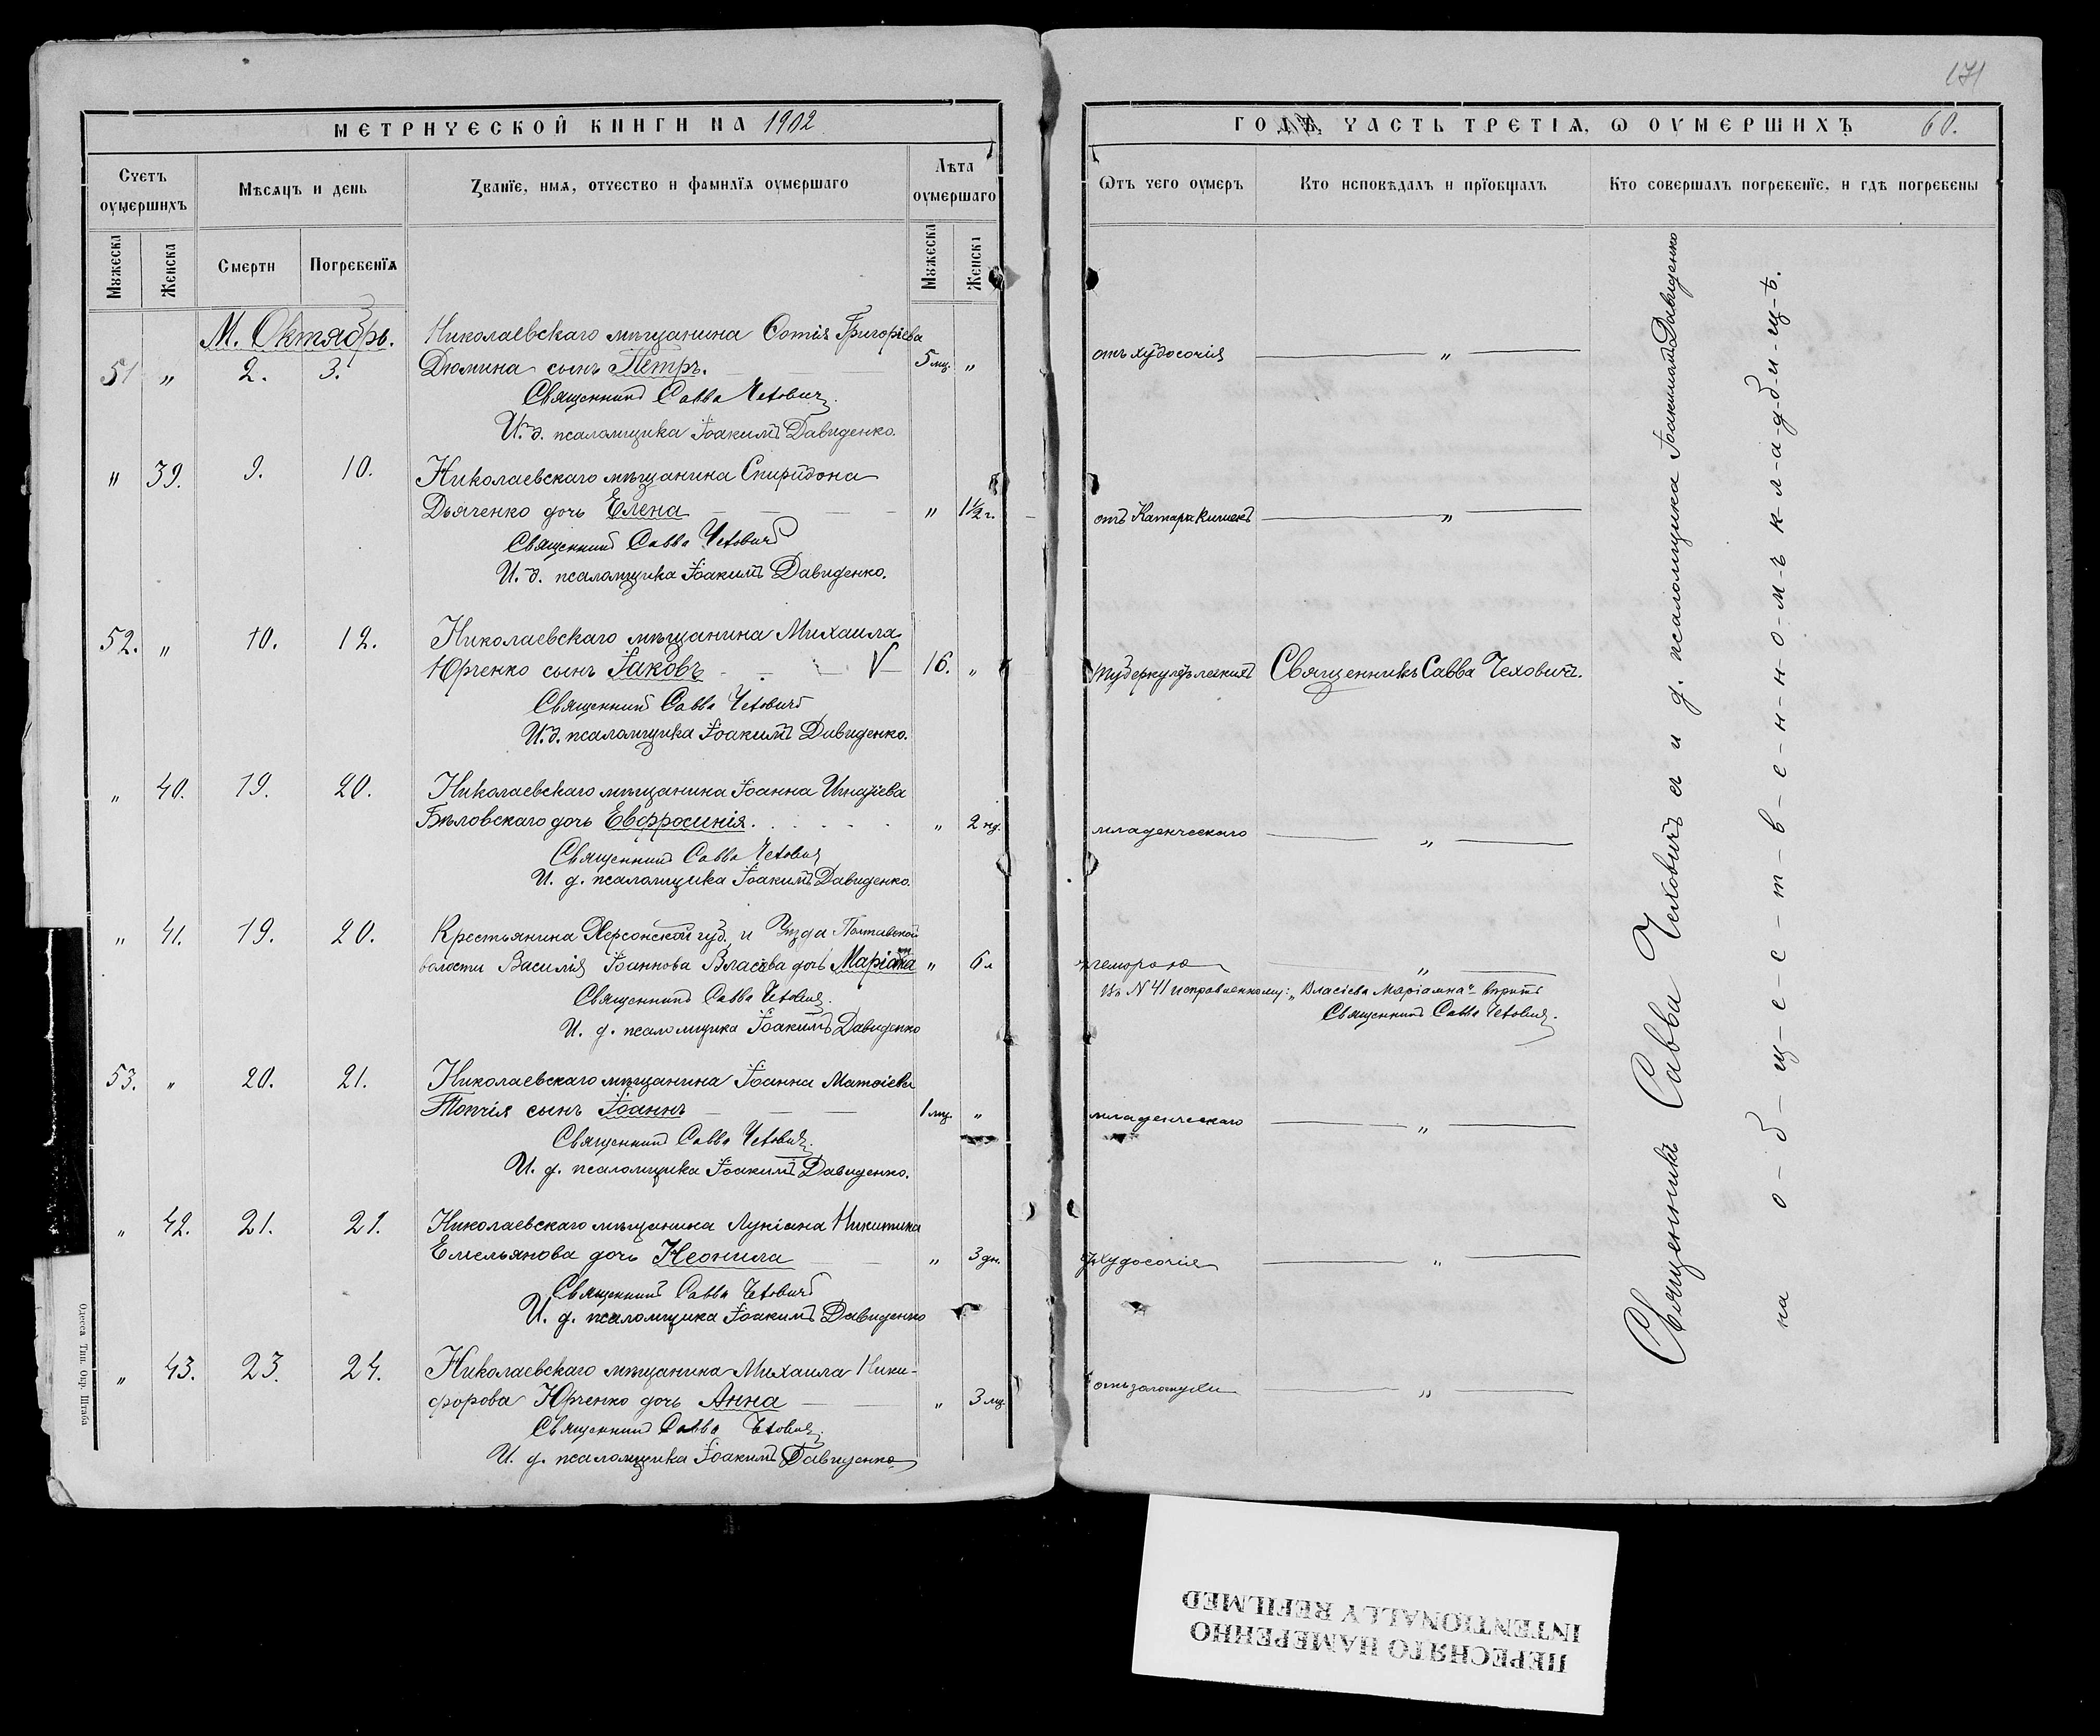 МЕТРИЧЕСКОЙ КНИГИ НА 1902
Счетъ оумершихъ
Мѣсяцъ и день
Званїе, имя, отчество и фамилїя оумершаго
Лѣта оумершаго
Мужеска
Женска
Смерти
Погребенїя
Мужеска
Женска
М. Октябрь.
Николаевскаго мѣщанина Григоріева
51 " 2. 3. Дюмина сынъ Петръ. 5 мц. "
Священникъ Савва Чеховичъ.
И. д. псаломщика Іоакимъ Давиденко.
" 39. 9. 10. Николаевскаго мѣщанина Спиридона
Дьяченко дочь Елена " 1½ г.
Священникъ Савва Чеховичъ
И. д. псаломщика Іоакимъ Давиденко.
52. " 10. 12. Николаевскаго мѣщанина Михаила
Юрченко сынъ Іаковъ V 16. "
Священникъ Савва Чеховичъ
И. д. псаломщика Іоакимъ Давиденко.
" 40. 19. 20. Николаевскаго мѣщанина Іоанна Игнатіева
Бѣловскаго дочь Евфросинія. " 2 нд.
Священникъ Савва Чеховичъ
И. д. псаломщика Іоакимъ Давиденко.
" 41. 19. 20. Крестьянина Херсонской губ. и Уѣзда Полтавской
волости Василія Іоаннова Власіева дочь " 6 л
Священникъ Савва Чеховичъ.
И. д. псаломщика Іоакимъ Давиденко
53. " 20. 21. Николаевскаго мѣщанина Іоанна Матѳіева
Топчія сынъ Іоаннъ 1 мц. "
Священникъ Савва Чеховичъ.
И. д. псаломщика Іоакимъ Давиденко.
" 42. 21. 21. Николаевскаго мѣщанина Лукіана Никитина
Емельянова дочь Неонила " 3 дн.
Священникъ Савва Чеховичъ
И. д. псаломщика Іоакимъ Давиденко
" 43. 23. 24. Николаевскаго мѣщанина Михаила Ники-
форова Юрченко дочь Анна " 3 мц.
Священникъ Савва Чеховичъ.
И. д. псаломщика Іоакимъ Давиденко
Одесса Тип. Окр. Штаба
171
ГОДЪ, ЧАСТЬ ТРЕТІЯ, Ѡ ОУМЕРШИХЪ 60.
Ѿтъ чего оумеръ
Кто исповѣдалъ и прїобщалъ
Кто совершалъ погребенїе, и гдѣ погребены
отъ худосочія "
отъ Катара кишекъ "
туберкулезъ легкихъ Священникъ Савва Чеховичъ.
младенческаго "
"
Въ N 41 исправленному: „Власіева Маріамна" вѣрить
Священникъ Савва Чеховичъ.
младенческаго "
худосочія "
отъ золотухи "
Священникъ Савва Чеховичъ съ и д. псаломщика Іоакимомъ Давиденко
на о-б-щ-е-с-т-в-е-н-н-о-м-ъ к-л-а-д-б-и-щ-ѣ.
ПЕРЕСНЯТО НАМЕРЕННО
INTENTIONALLY REFILMED